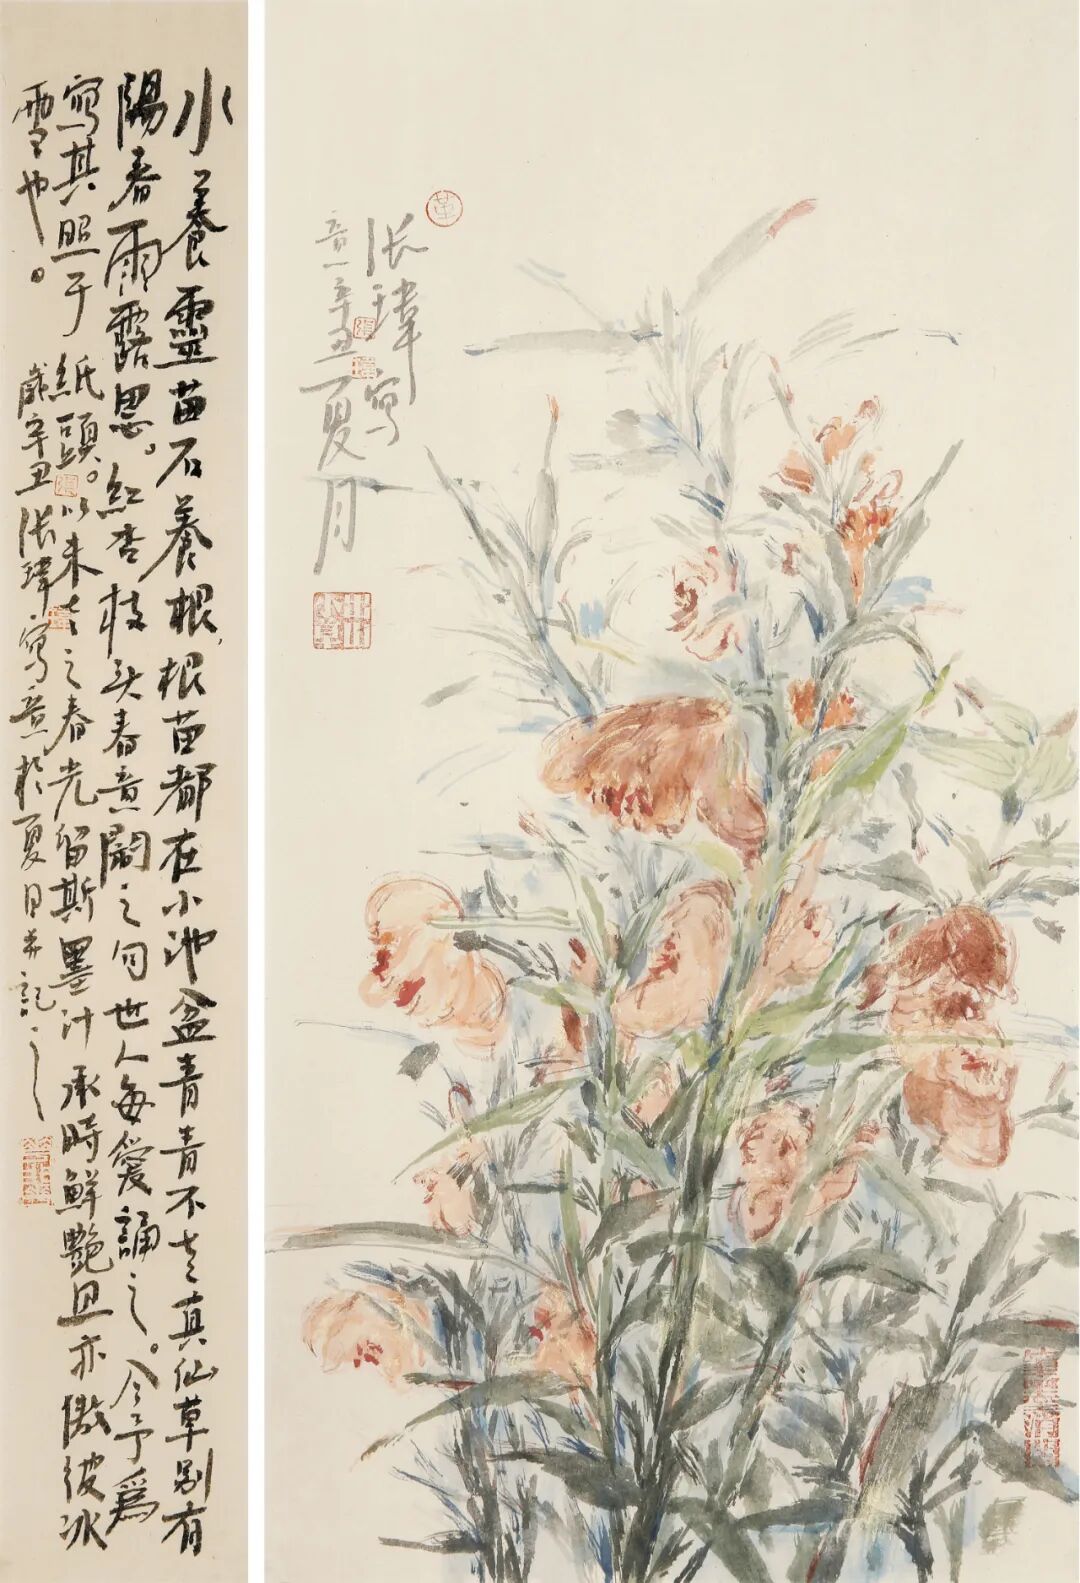 水養靈苗石養根根苗都在小池盆青青不老真仙草別有
陽春雨露恩。紅杏枝头春意鬧之句世人每愛誦之。今予為
寫其照于紙頭。以未老之春光留斯墨汁承時鮮艷且亦傲彼冰
雪也。歲辛丑张瑋寫意於夏日并記之
张瑋写
意辛丑夏月